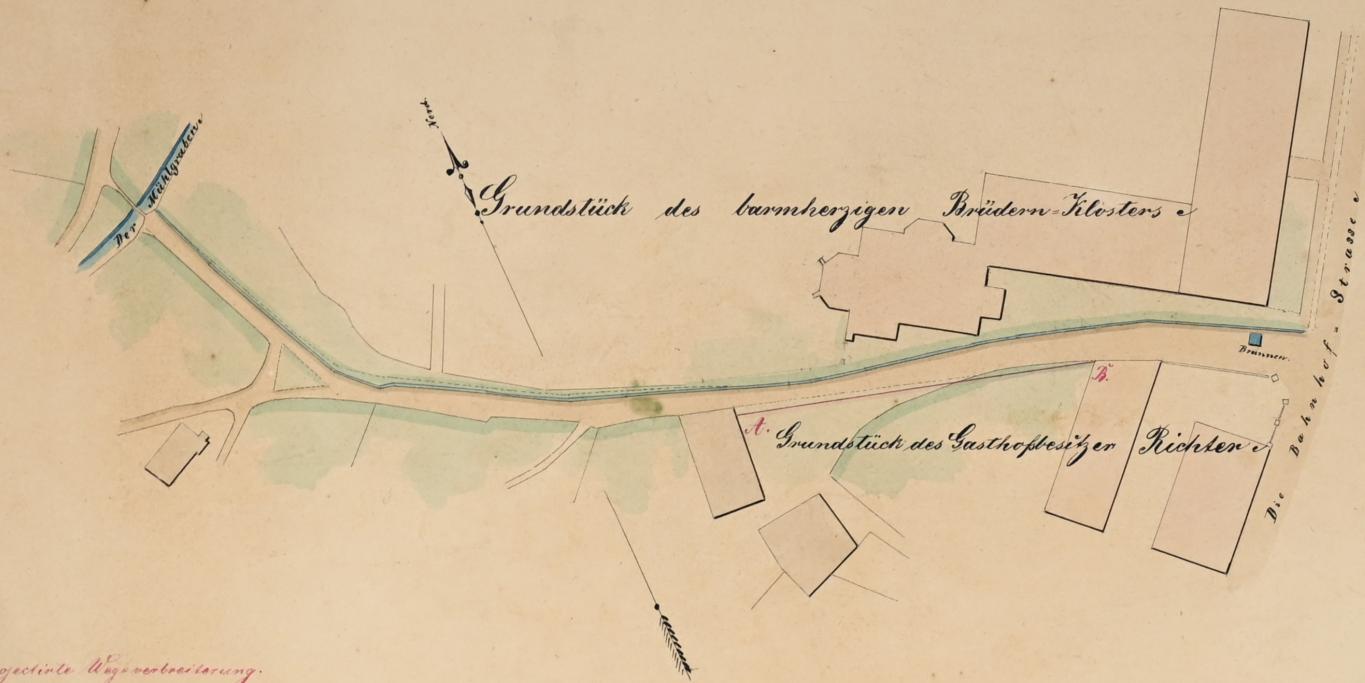 Nord.
Der Mühlgraben
Grundstück des barmherzigen Brüdern=Klosters
Brunnen.
A.
B.
Grundstück des Gasthofbesitzer Richter
Die Bahnhof=Strasse
Wegeverbreiterung.